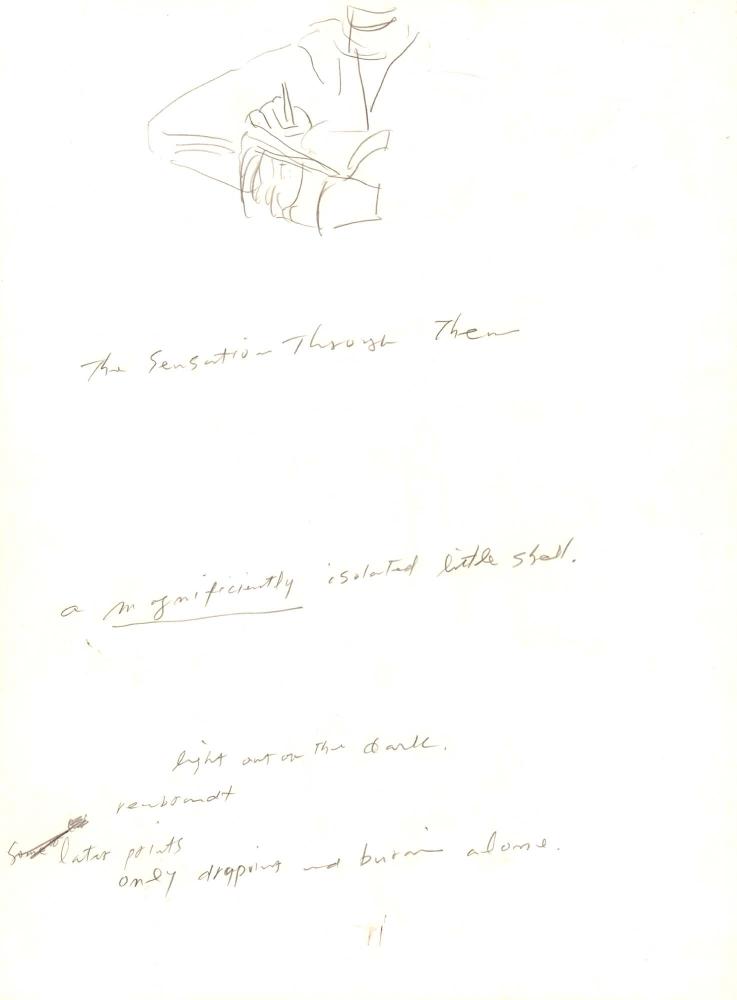 The Sensation Through Them
a magnificiently isolated little shell.
light out on the dark.
rembrandt
Some later prints
only drypoint and burin alone.